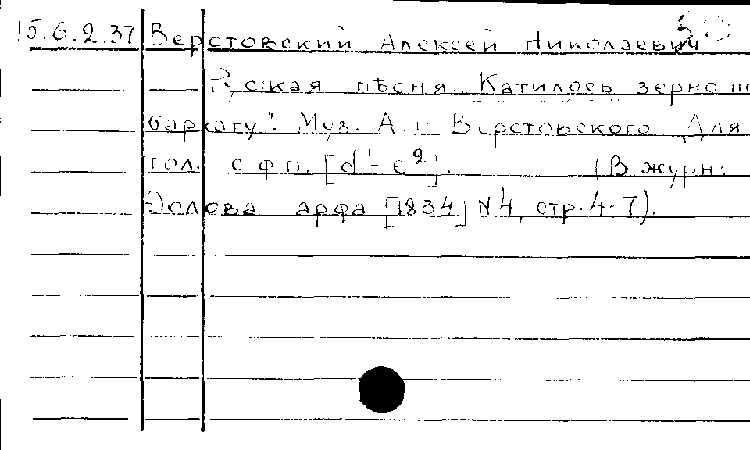 15.6.2.37 Верстовский Алексей Николаевич
Руская пѣсня Катилось зерно по
бархату". Муз. А. Н. Верстовского Для
гол. с ф п. [d¹-e²]. (В журн:
Эолова арфа [1834] N4, стр. 4-7).